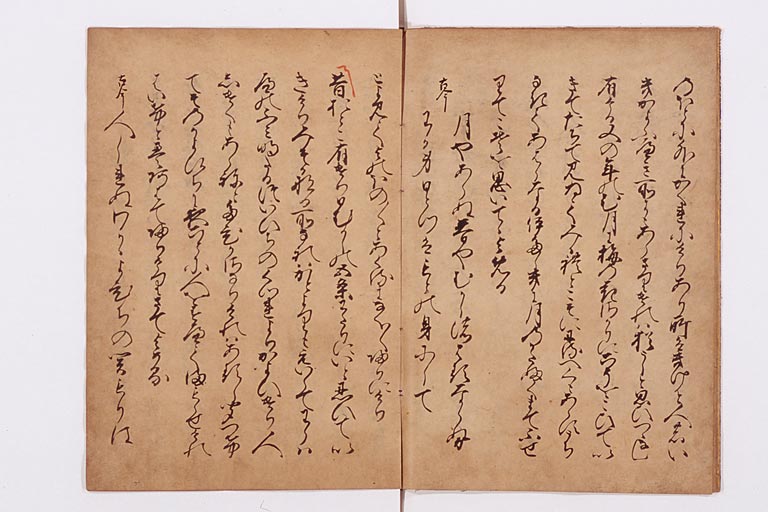 のほとにほかにかくれにけりあり所はきけと人のい
きかよふへき所にもあらさりけれは猶うしと思ひつゝなん
有ける又の年のむ月に梅の花さかりにこそをこひてい
きてたちて見ゐてみ見れとこそににるへくもあらすうち
なきてあはらなるいたしきに月のかたふくまてふせ
りてこそを思いてゝよめる
古今
月やあらぬ春やむかしの春ならぬ
わか身ひとつはもとの身にして
とよみてよのほの〳〵とあくるになく〳〵帰にけり
昔おとこ有けりひむかしの五条わたりにいと忍ひてい
きけりみそかなる所なれはかとよりもえいらてわらは
へのふみあけたるついひちのくつれよりかよひけり人
しけくもあらねとたひかさなりけれはあるしきゝつけ
てそのかよひちに夜ことに人をすへてまもらせけれ
はいけともえあはてかへりけりさてよめる
古今
人しれぬわかかよひちの関もりは